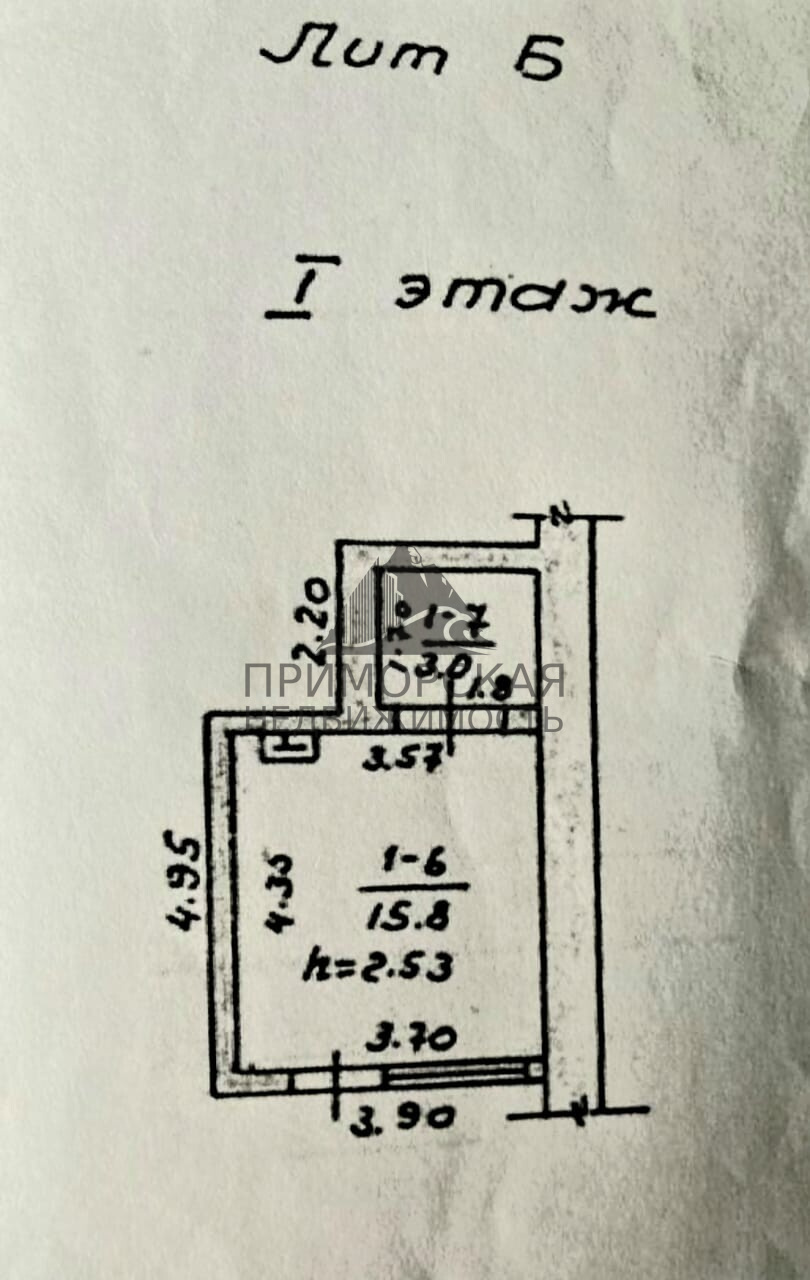 Лит Б
I этаж
2.20
1.70
1-7
3.0
1.8
ПРИМОРСКАЯ
НЕДВИЖИМОСТЬ
3.57
4.95
4.35
1-6
15.8
h=2.53
3.70
3.90